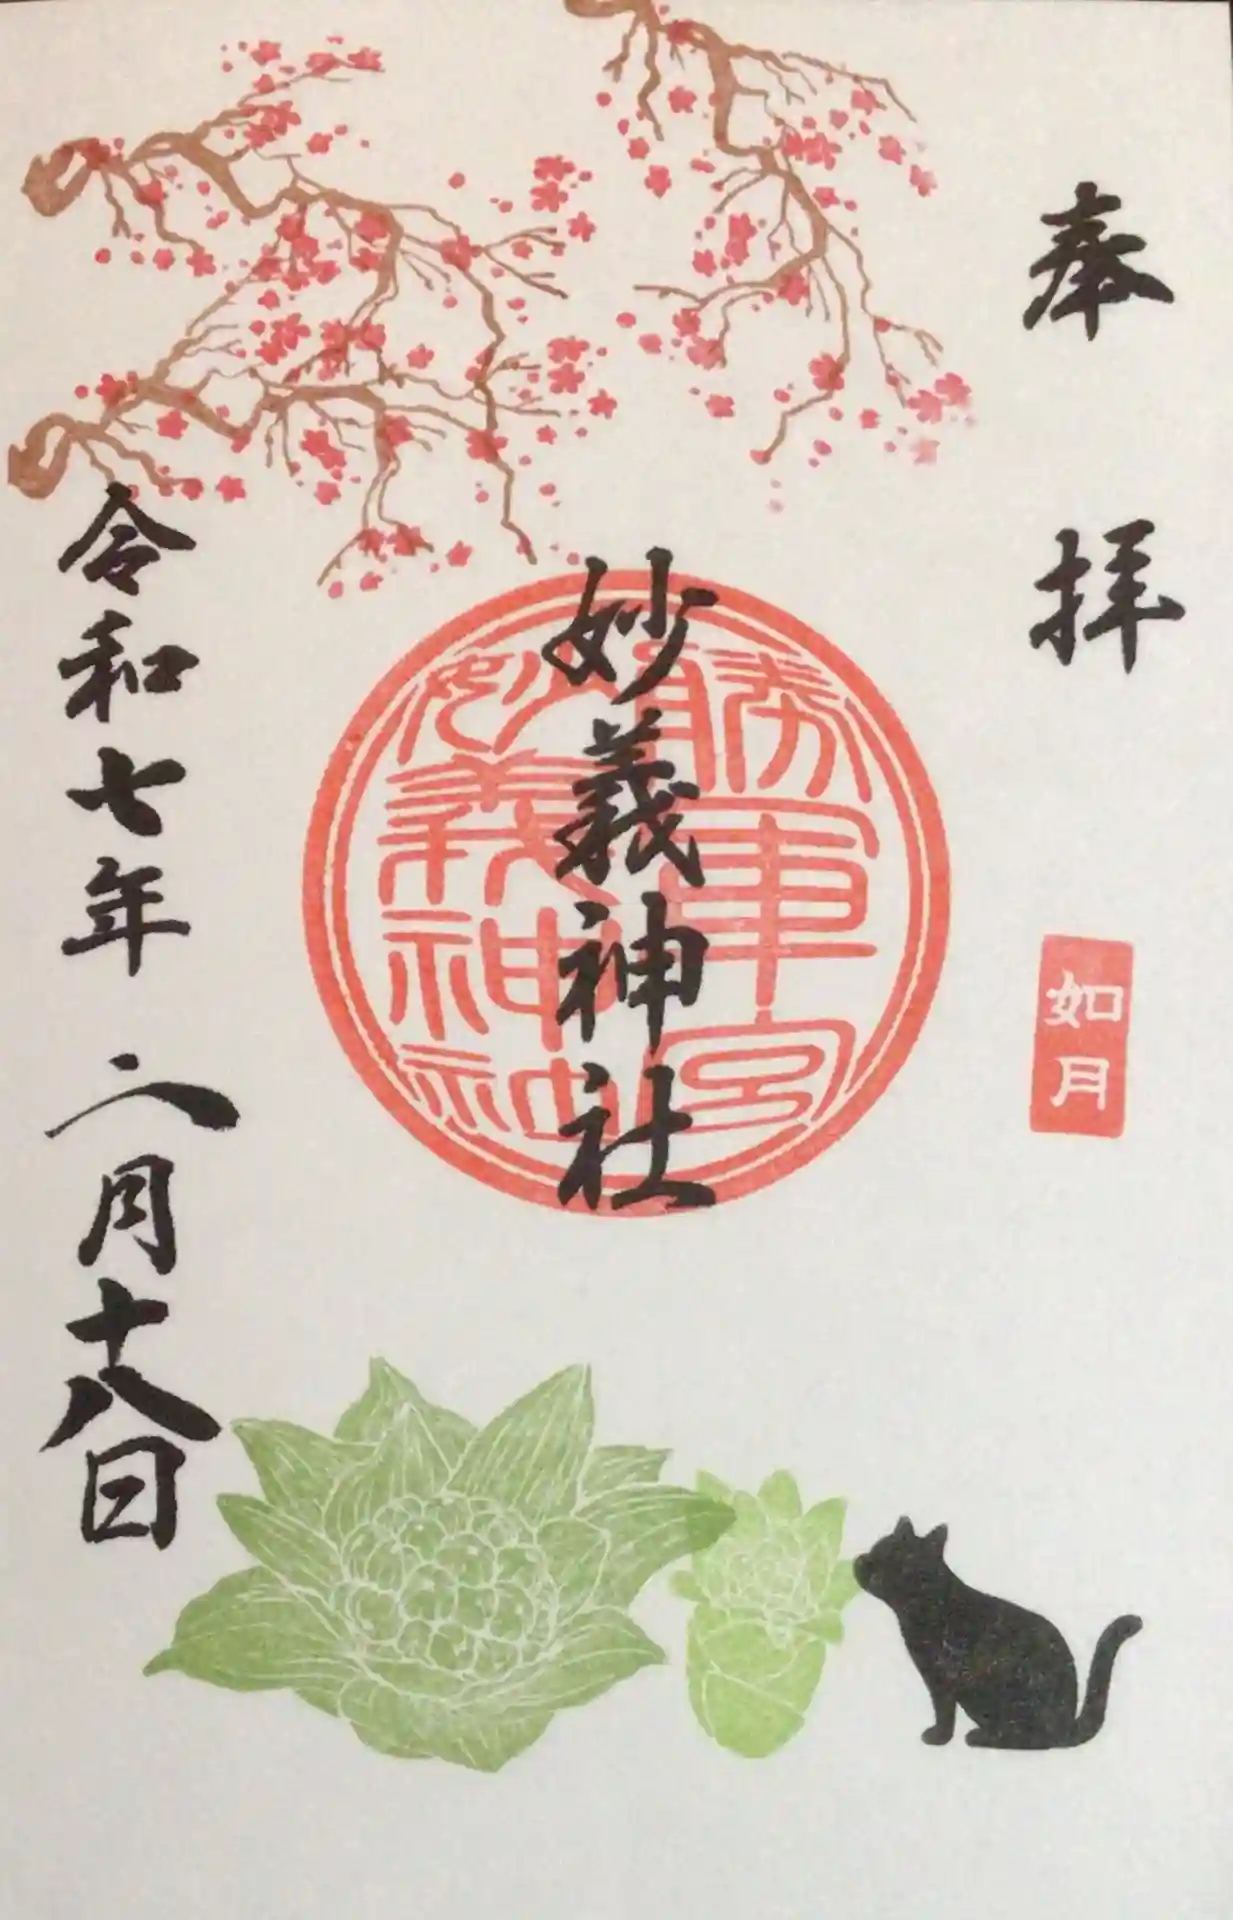 奉拝
如月
勝軍宮
妙義神社
妙義神社
令和七年 二月十八日